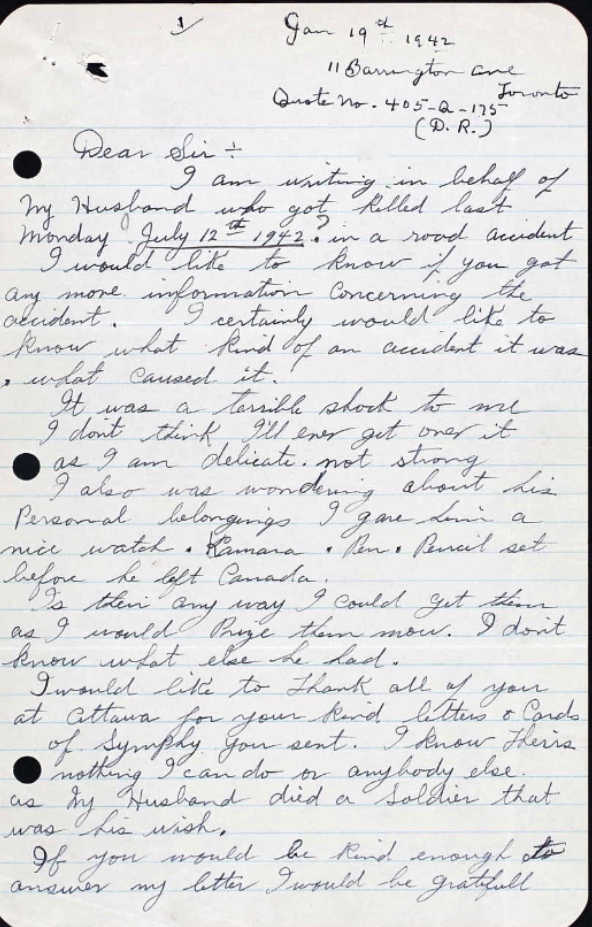 1
Jan 19th 1942
11 Barrington Ave
Toronto
Quote No. 405-Q-175
(D.R.)
Dear Sir ÷
I am writing in behalf of
My Husband who got killed last
Monday July 12th 1942 ? in a road accident
I would like to know if you got
any more information concerning the
accident. I certainly would like to
know what kind of an accident it was
. what caused it.
It was a terrible shock to me
I dont think I'll ever get over it
as I am delicate . not strong
I also was wondering about his
Personal belongings I gave him a
nice watch . Kamara . Pen . Pencil set
before he left Canada.
Is their any way I could get them
as I would Prize them now. I don't
know what else he had.
I would like to Thank all of you
at Ottawa for your kind letters & Cards
of Symphy you sent. I know Theirs
nothing I can do or anybody else.
as My Husband died a Soldier that
was his wish.
If you would be kind enough to
answer my letter I would be gratefull